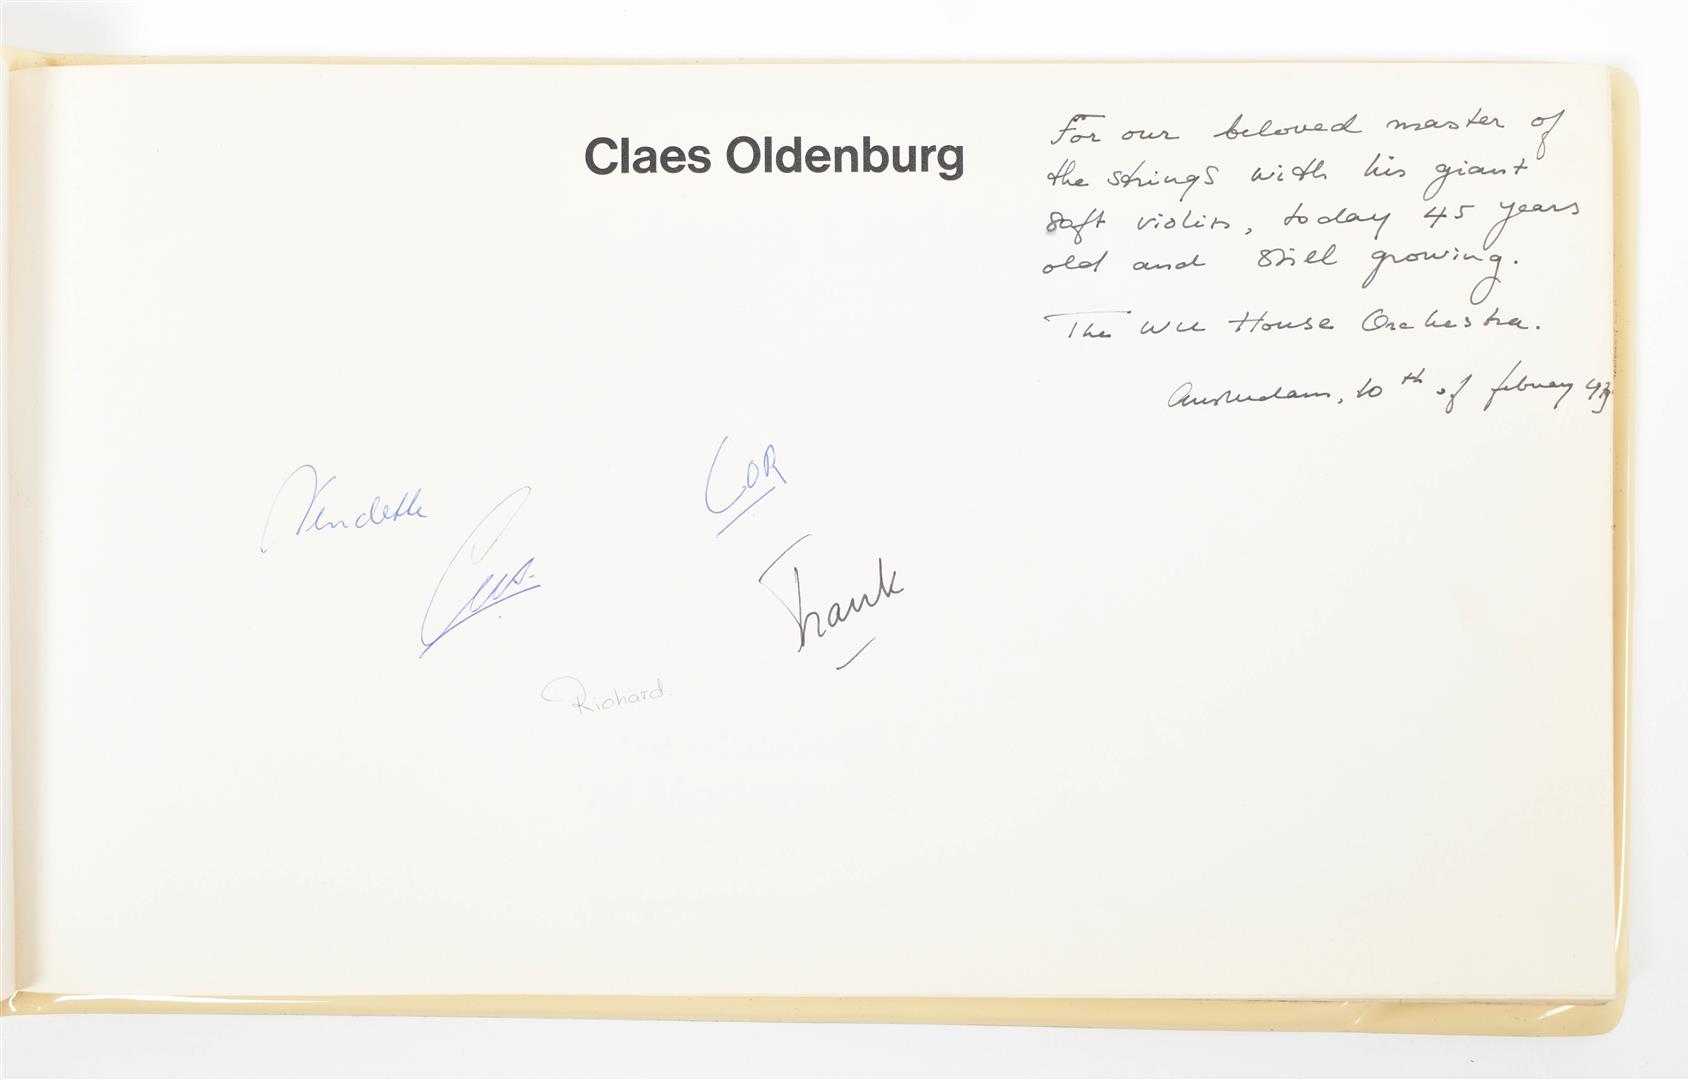 Claes Oldenburg
For our beloved master of
the strings with his giant
soft violin, today 45 years
old and still growing.
The wee House Orchestra.
Amsterdam, 10th of february
COR
Frank
Richard.